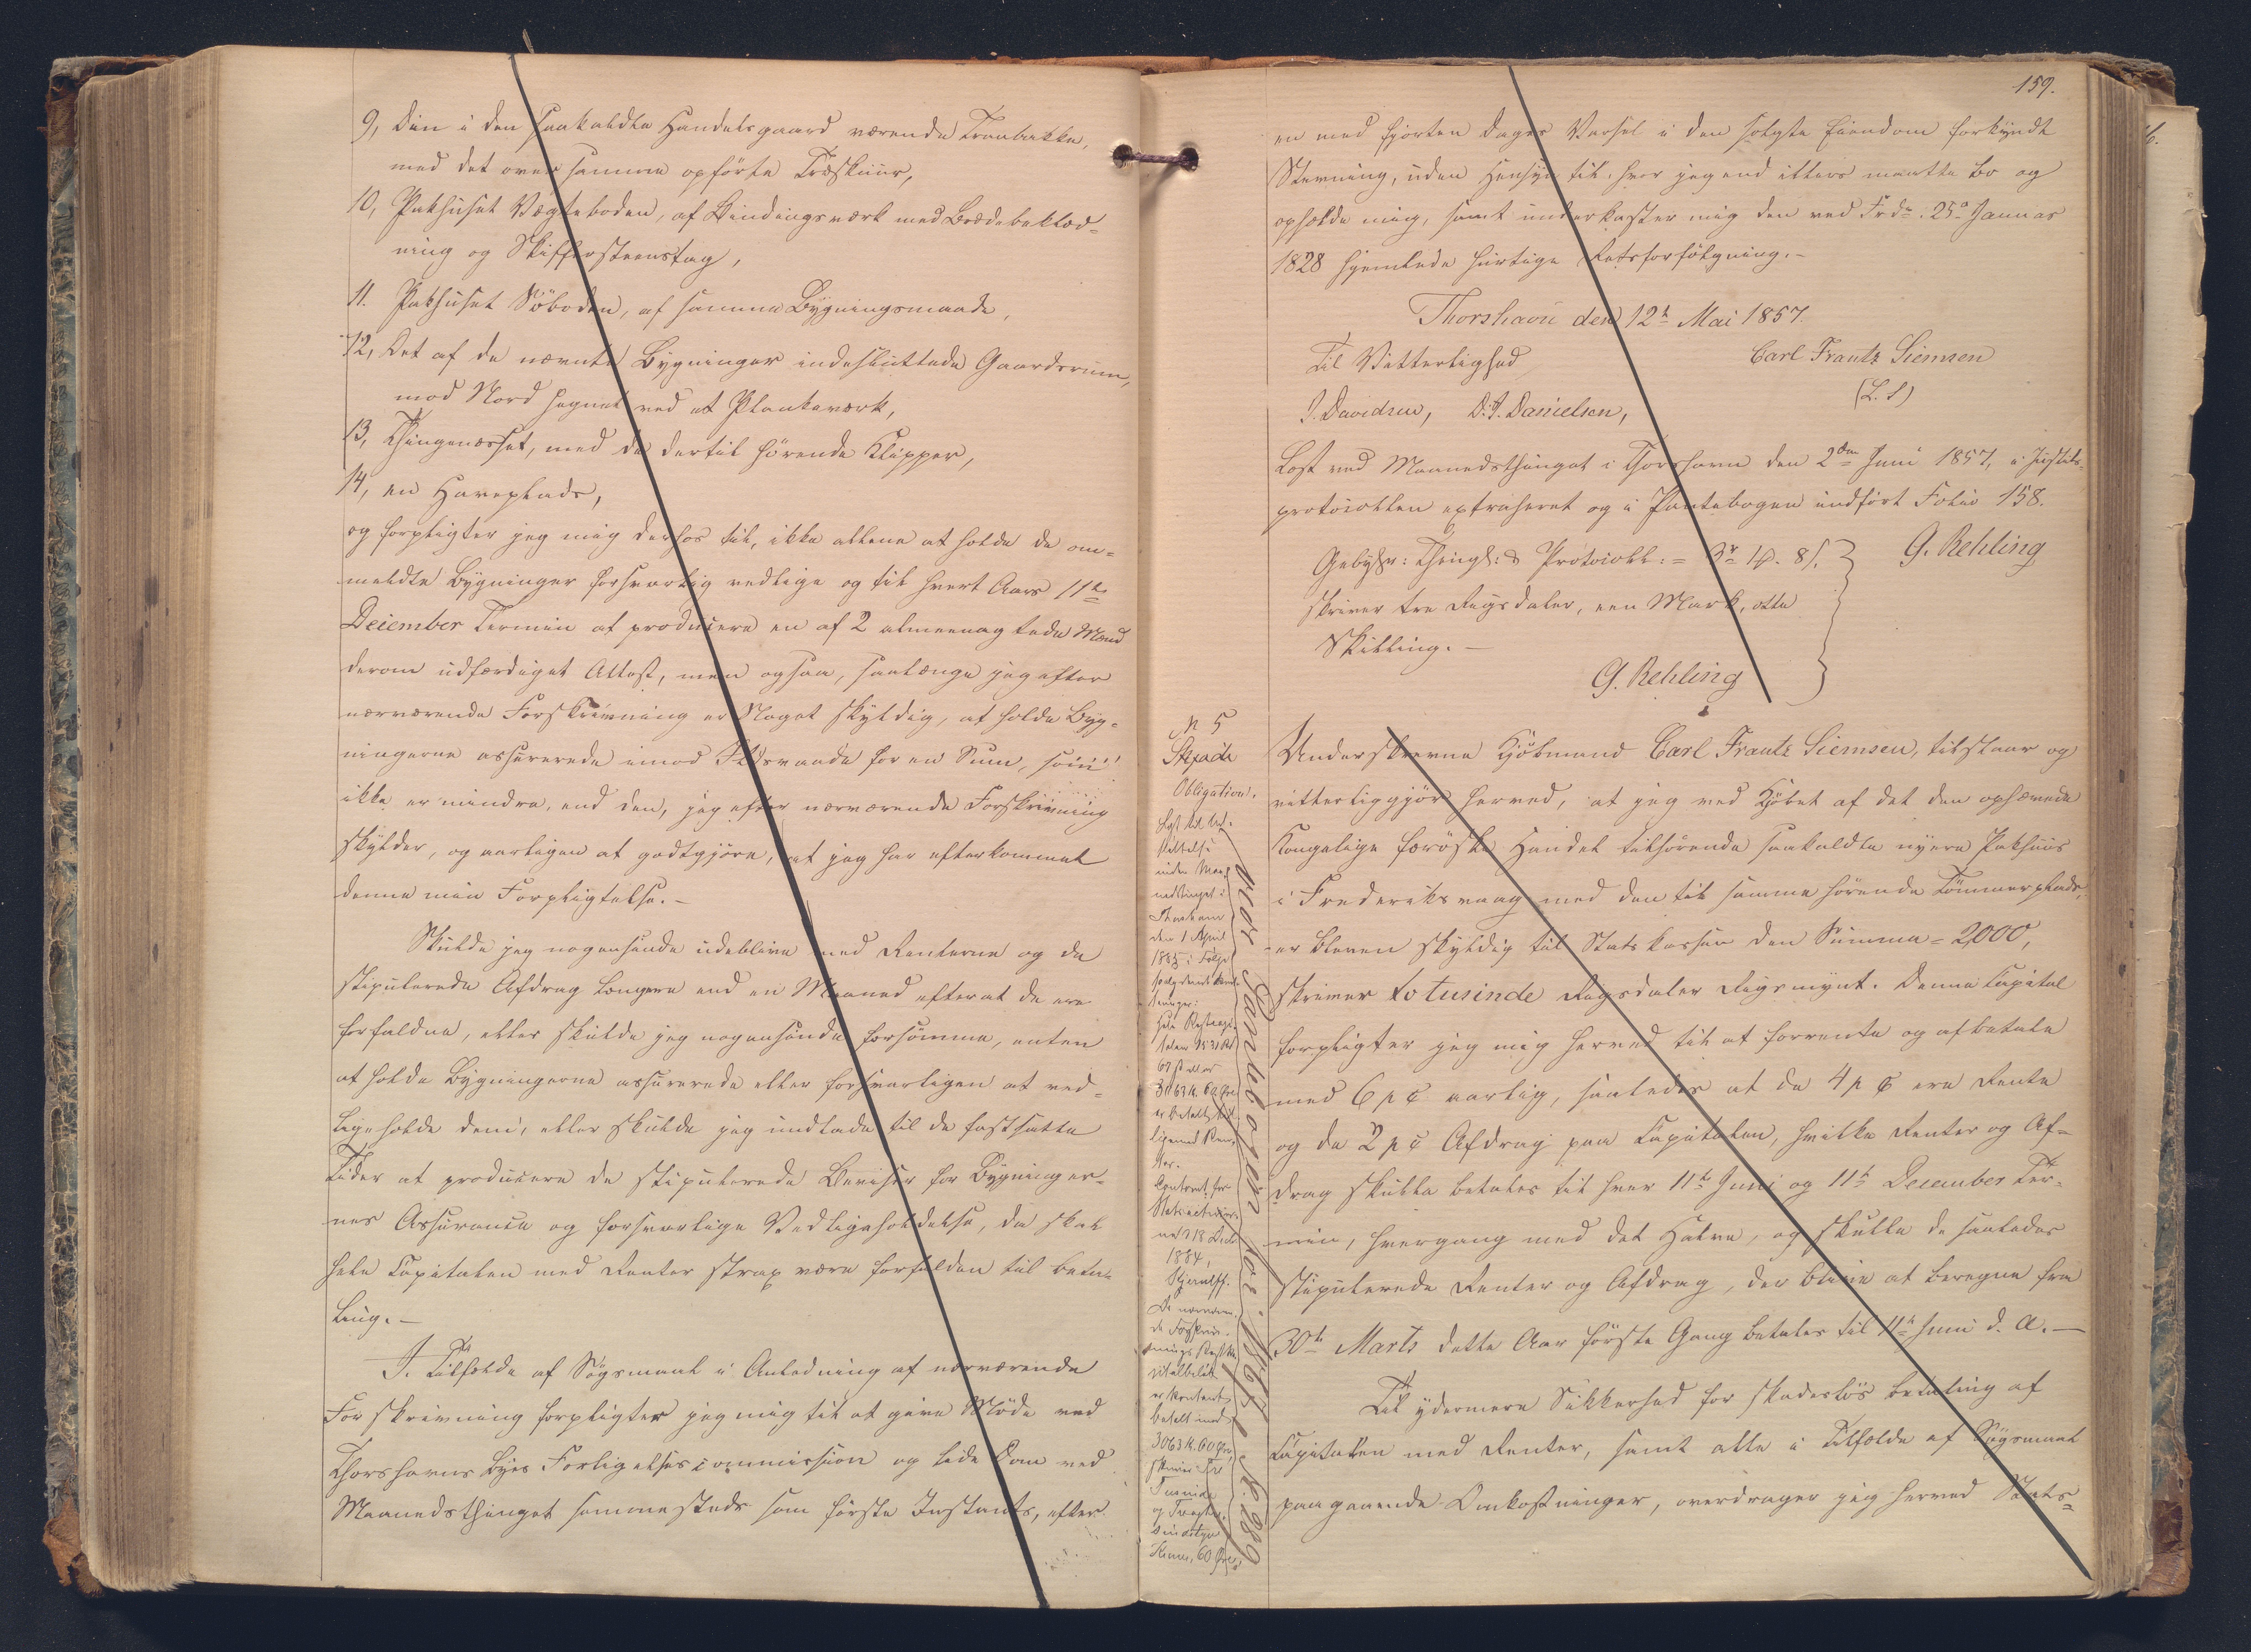 9, Den i den saakaldte Handelsgaard værende Tranbakke,
med det over samme opförte Træskuur,
10, Pakhuset Vægteboden, af Bindingsværk med Brædebeklæd=
ning og Skiffersteenstag,
11. Pakhuset Söboden, af samme Bygningsmaade,
12, Det af de nævnte Bygninger indesluttede Gaardsrum,
mod Nord hegnet ved et Plankeværk,
13, Thingenæsset, med de dertil hörende Klipper,
14, en Haveplads,
og forpligter jeg mig derhos til, ikke allene at holde de om=
meldte Bygninger forsvarlig vedlige og til hvert Aars 11te
December Termin at producere en af 2 almeenagtede Mænd
derom udfærdiget Attest, men ogsaa, saalænge jeg efter
nærværende Forskrivning er Noget skyldig, at holde Byg=
ningerne assurerede imod Ildsvaade for en Sum, som
ikke er mindre, end den, jeg efter nærværende Forskrivning
skylder, og aarligen at godtgjöre, at jeg har efterkommet
denne min Forpligtelse.-
Skulde jeg nogensinde udeblive med Renterne og de
stipulerede Afdrag længere end en Maaned efterat de ere
forfaldne, eller skulde jeg nogensinde forsömme, enten
at holde Bygningerne assurerede eller forsvarligen at ved=
ligeholde dem, eller skulde jeg undlade til de fastsatte
Tider at producere de stipulerede Beviser for Bygninger=
nes Assurance og forsvarlige Vedligeholdelse, da skal
hele Capitalen med Renter strax være forfalden til beta=
ling.-
I Tilfælde af Sögsmaal i Anledning af nærværende
Forskrivning forpligter jeg mig til at give Möde ved
Thorshavns Byes Forligelsescommission og lide Dom ved
Maanedsthinget sammesteds som förste Instants, efter
159.
en med fjorten Dages Varsel i den solgte Eiendom forkyndt
Stevning, uden Hensyn til, hvor jeg end ellers maatte bo og
opholde mig, samt underkaster mig den ved Frdn. 25de Januar
1828 hjemlede hurtige Retsforfölgning.-
Thorshavn den 12te Mai 1857.
Til Vitterlighed
Carl Frantz Siemsen
(L. S)
J. Davidsen, D. J. Danielsen,
Læst ved Maanedsthinget i Thorshavn den 2den Juni 1857, i Justits=
protocollen extraheret og i Pantebogen indfört Folio 158.
Gebyhr: Thingl: & Protocoll: = 3r 1#. 8s.
G. Rehling
skriver tre Rigsdaler, een Mark, otte
Skilling.-
G. Rehling
N 5
Siemsen
Obligation.
Underskrevne Kjöbmand Carl Frantz Siemsen, tilstaar og
vitterliggjör herved, at jeg ved Kjöbet af det den ophævede
Kongelige færöske Handel tilhörende saakaldte nyere Pakhuus
i Frederiksvaag med den til samme hörende Tömmerplads,
er bleven skyldig til Statskassen den Summa = 2000,
skriver to tusinde Rigsdaler Rigsmynt. Denne Capital
forpligter jeg mig herved til at forrente og afbetale
med 6 p C aarlig, saaledes at de 4 p C ere Rente
og de 2 p C Afdrag paa Capitalen, hvilke Renter og Af=
drag skulle betales til hver 11te Juni og 11te December Ter=
min, hvergang med det Halve, og skulle de saaledes
stipulerede Renter og Afdrag, der blive at beregne fra
30te Marts dette Aar förste Gang betales til 11te Juni d. A.-
Til ydermere Sikkerhed for skadeslös betaling af
Capitalen med Renter, samt alle i Tilfælde af Sögsmaal
paagaaende Omkostninger, overdrager jeg herved Stats=
Læst til Ud-
slettelse
inden Maa-
nedstinget i
Thorshavn
den 1 April
1885 i Følge
er betalt
1884,
3063 K. 60 Øre,
Kroner, 60 Øre
vid. Pantebogen for 1865 f. N. 289